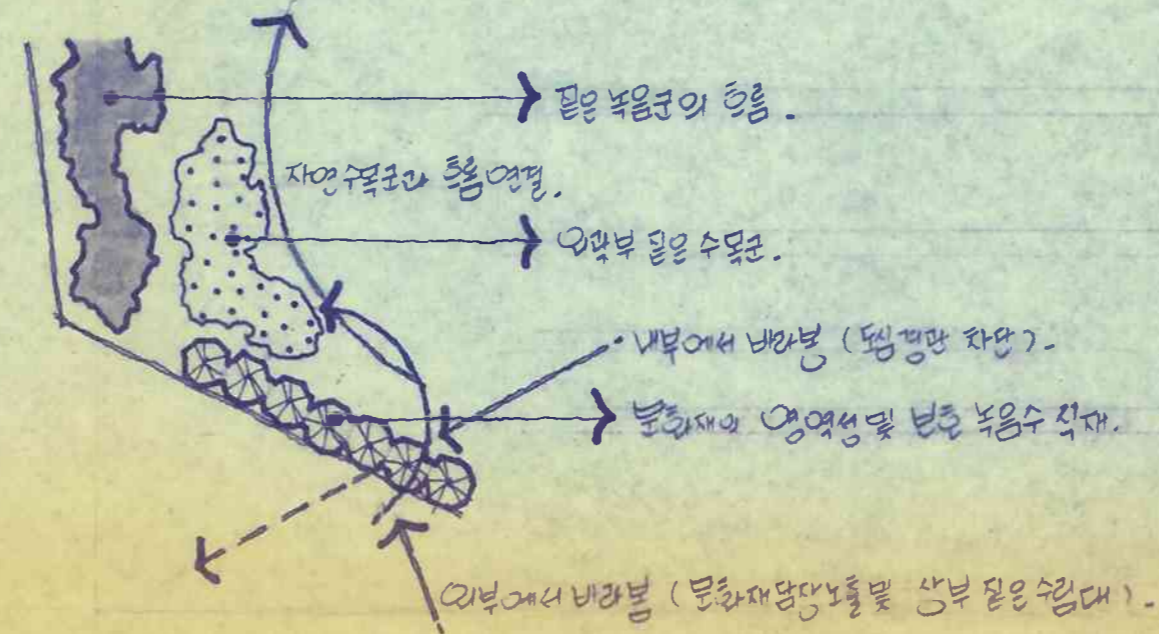 짙은 녹음군의 흐름.
자연수목군과 흐름 연결.
외곽부 짙은 수목군.
내부에서 바라봄 (도심경관 차단).
문화재의 영역성 및 보호 녹음수 식재.
외부에서 바라봄 (문화재담장노출및 상부 짙은 수림대).